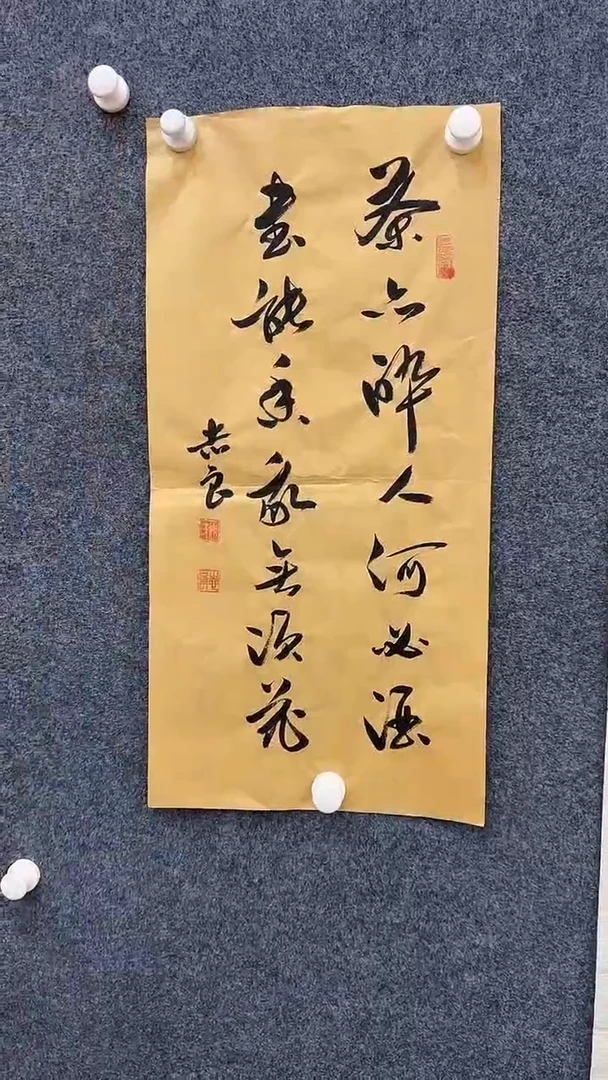 茶亦醉人何必酒
書能香我無須花
志良